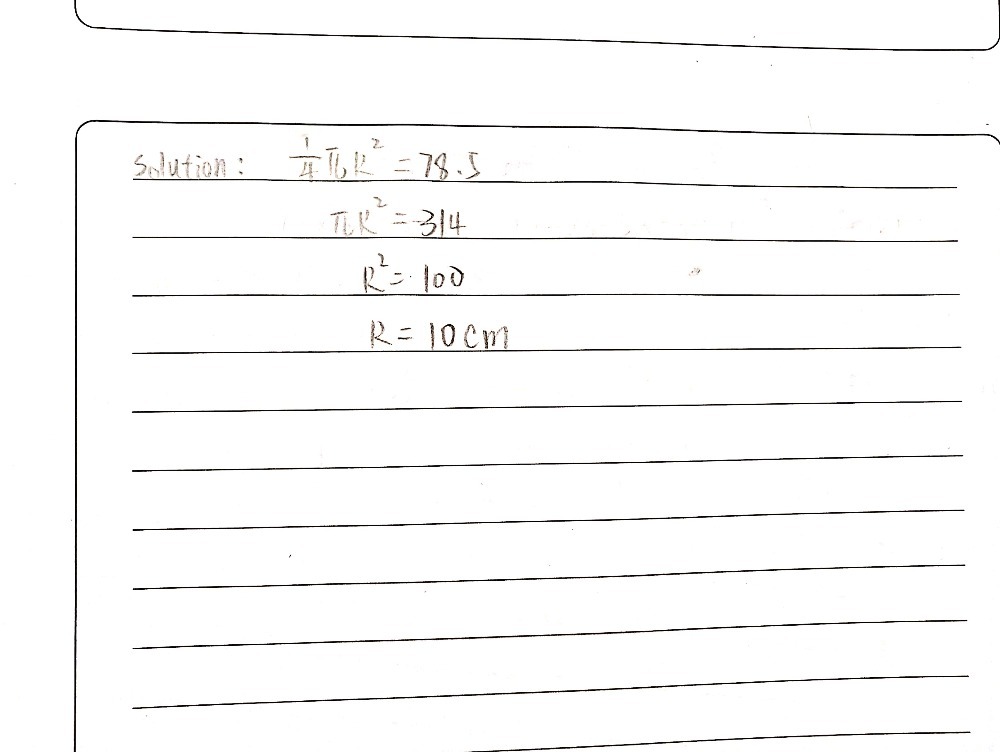 Solution: 1/4 πR² = 78.5
πR² = 314
R² = 100
R = 10cm